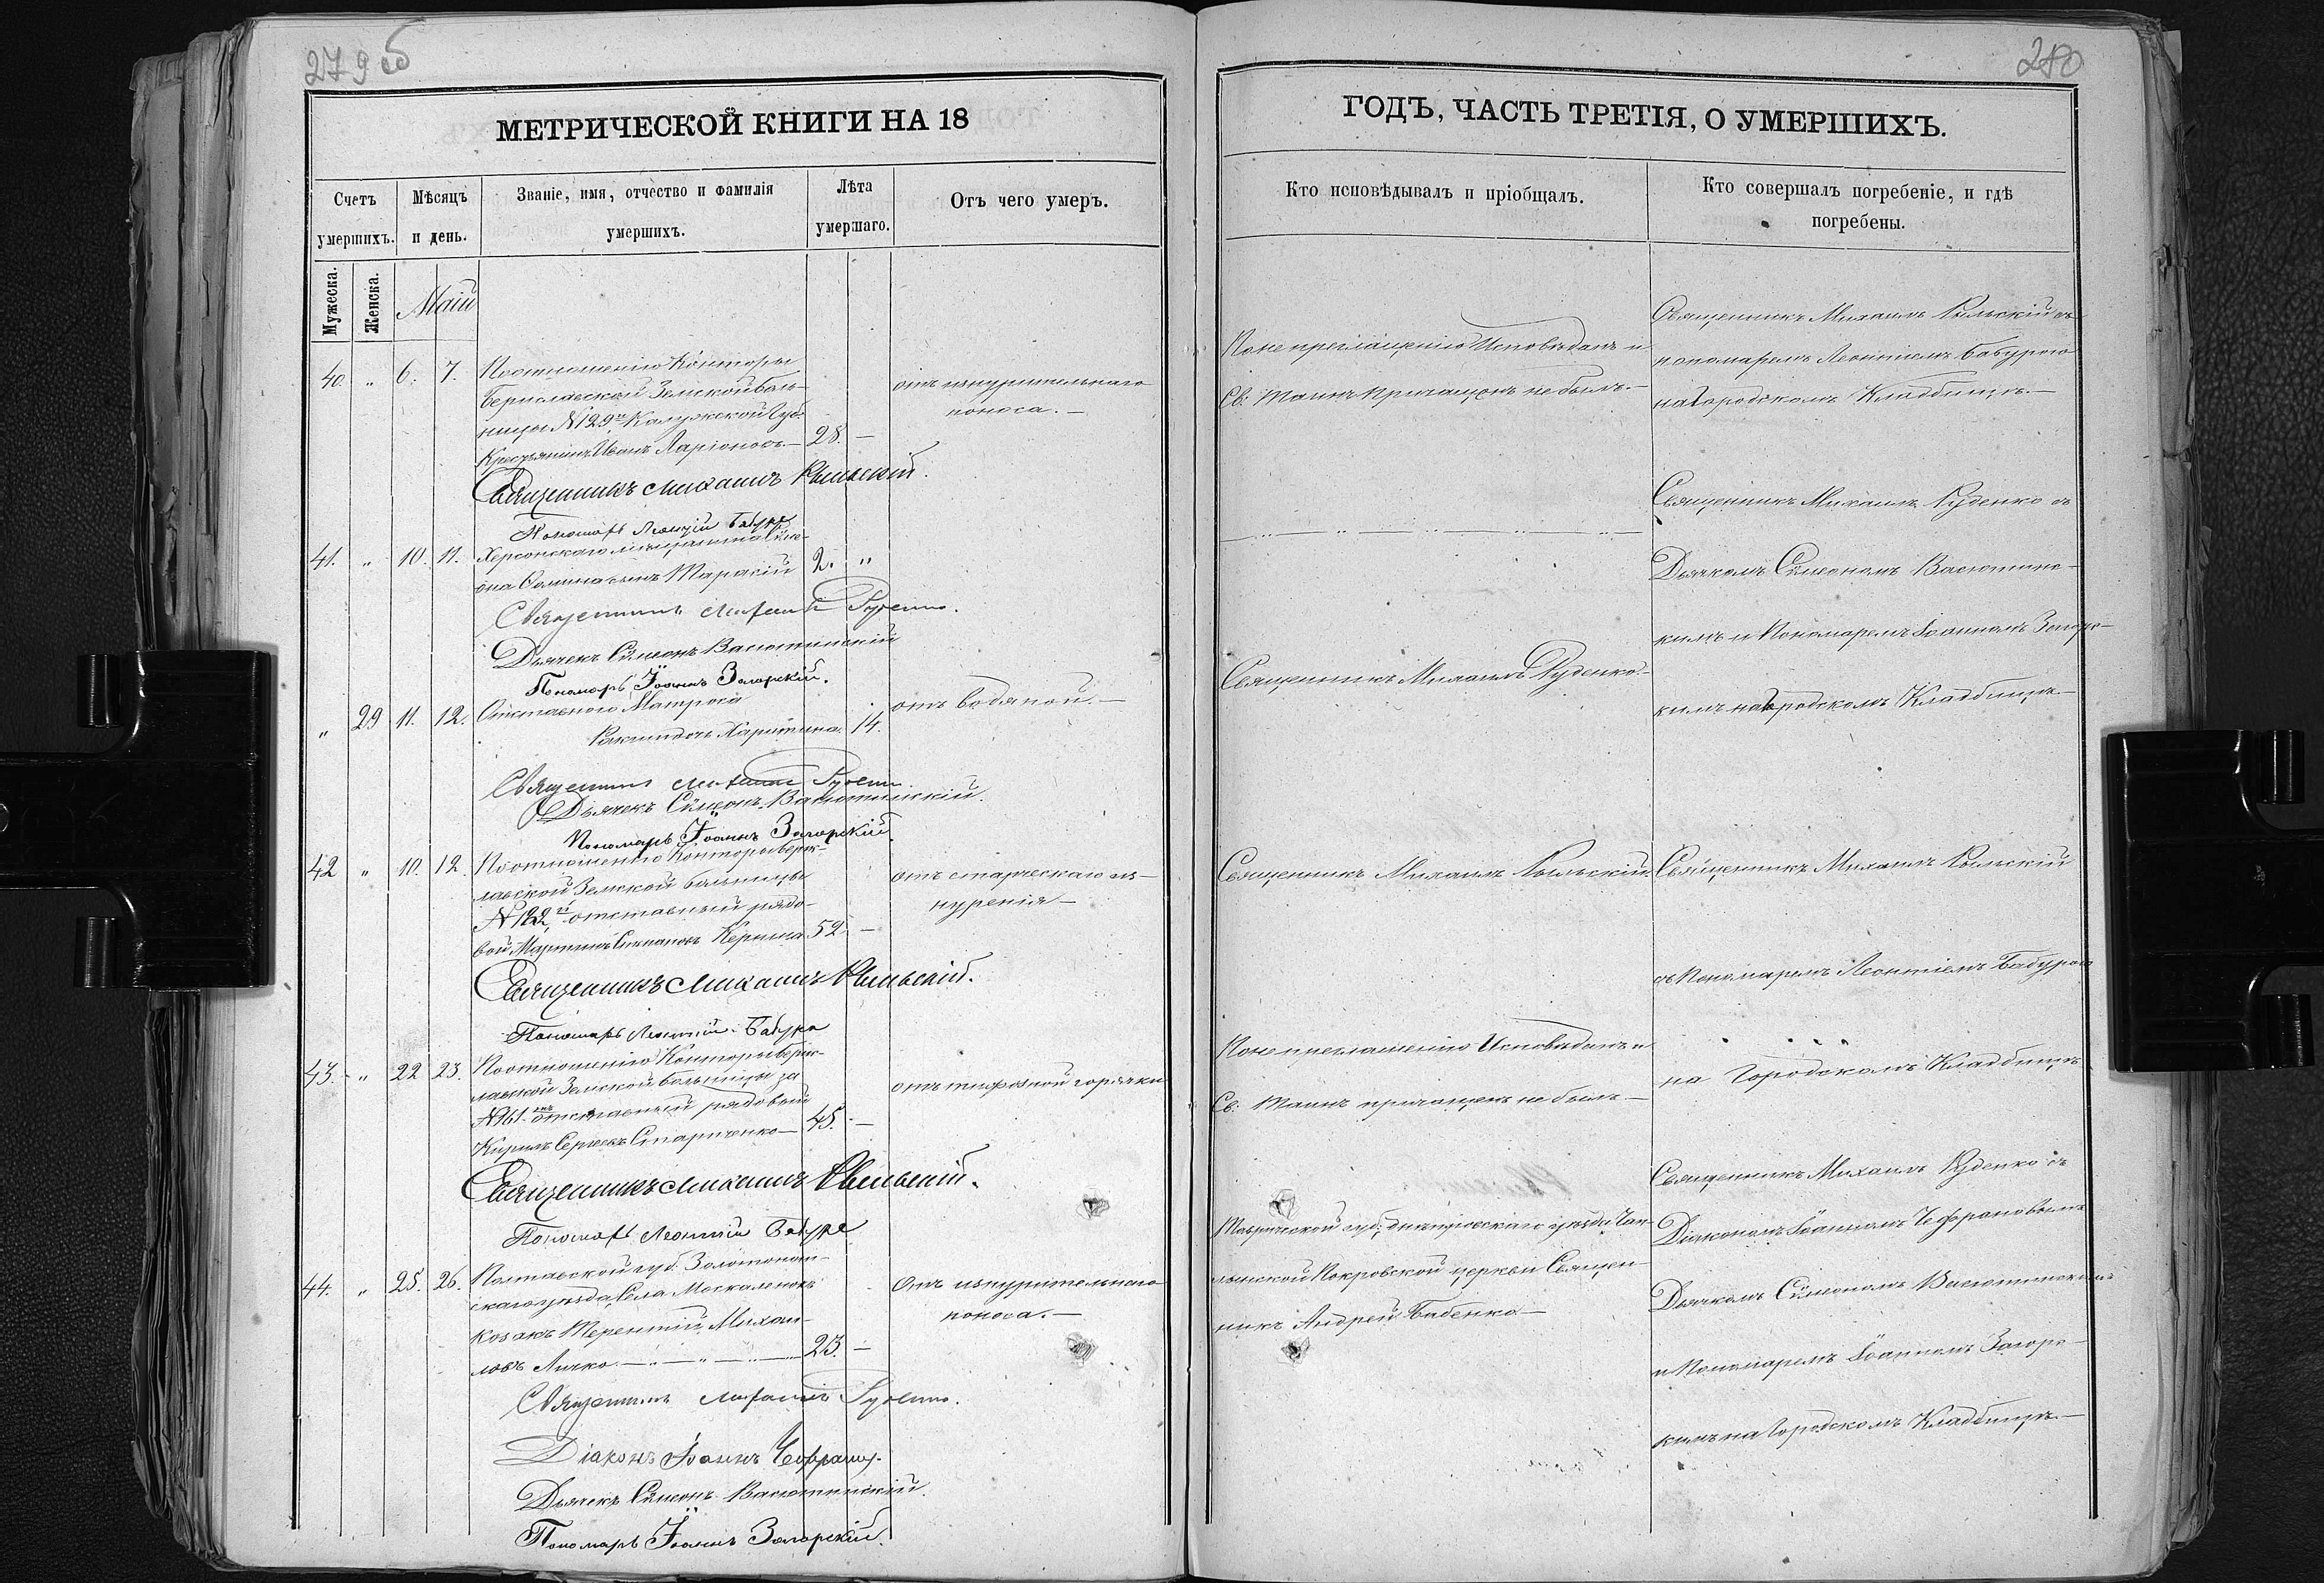 279 об
МЕТРИЧЕСКОЙ КНИГИ НА 18
Счетъ умершихъ.
Мѣсяцъ и день.
Званіе, имя, отчество и фамилія умершихъ.
Лѣта умершаго.
Отъ чего умеръ.
Мужеска.
Женска.
Маій
40. „ 6. 7. По отношенію Конторы
Бериславской Земской боль-
ницы № 129й Калужской Губ.
Крестьянинъ Иванъ Ларіоновъ — 28. —
отъ изнурительнаго
поноса. —
Священникъ Михаилъ Рыльскій.
Пономарь Леонтій Бабура
41. „ 10. 11. Херсонскаго мѣщанина Сѵме-
она сынъ Тарасій 2. „
Священникъ Михаилъ Руденко.
Дьячекъ Сѵмеонъ Васютинскій
Пономарь Іоаннъ Загорскій.
„ 29 11. 12. Отставнаго Матроса
Харитина. 14.
отъ водяной. —
Священникъ Михаилъ Руденко
Дьячекъ Сѵмеонъ Васютинскій.
Пономарь Іоаннъ Загорскій.
42 „ 10. 12. По отношенію Конторы Берис-
лавской Земской больницы
№ 122й отставный рядо-
вой Мартинъ Степановъ 52 —
отъ старческаго из-
нуренія —
Священникъ Михаилъ Рыльскій.
Пономарь Леонтій Бабура
43. „ 22 23. По отношенію Конторы Берис-
лавской Земской больницы за
№ 161 отставный рядовый
Кирилъ Сергеевъ Старченко — 45. —
отъ тифозной горячки
Священникъ Михаилъ Рыльскій.
Пономарь Леонтій Бабура
44. „ 25. 26. Полтавской губ. Золотонош-
скаго уѣзда, Села Москаленокъ
козакъ Терентій Михаи-
ловъ Личко. — „ — „ — 23. —
Отъ изнурительнаго
поноса. —
Священникъ Михаилъ Руденко.
Діаконъ Іоаннъ
Дьячекъ Сѵмеонъ Васютинскій.
Пономарь Іоаннъ Загорскій.
280
ГОДЪ, ЧАСТЬ ТРЕТІЯ, О УМЕРШИХЪ.
Кто исповѣдывалъ и пріобщалъ.
Кто совершалъ погребеніе, и гдѣ погребены.
По не преглашенію Исповѣданъ и
Св: Таинъ причащенъ не былъ. —
Священникъ Михаилъ Рыльскій съ
пономаремъ Леонтіемъ Бабурою
на Городскомъ Кладбищѣ. —
Священникъ Михаилъ Руденко съ
Дьячкомъ Сѵмеономъ Васютинс-
кимъ и Пономаремъ Іоанномъ Загорс-
кимъ на Городскомъ Кладбищѣ. —
Священникъ Михаилъ Руденко. —
Священникъ Михаилъ Рыльскій.
Священникъ Михаилъ Рыльскій
съ Пономаремъ Леонтіемъ Бабурою
на Городскомъ Кладбищѣ
По не преглашенію Исповѣданъ и
Св: Таинъ причащенъ не былъ. —
Таврической губ: днѣпровскаго уѣзда Чап-
линской Покровской церкви Священ-
никъ Андрей Бабенко —
Священникъ Михаилъ Руденко съ
Діакономъ Іоанномъ
Дьячкомъ Сѵмеономъ Васютинскимъ
и Пономаремъ Іоанномъ Загорс-
кимъ на Городскомъ Кладбищѣ. —